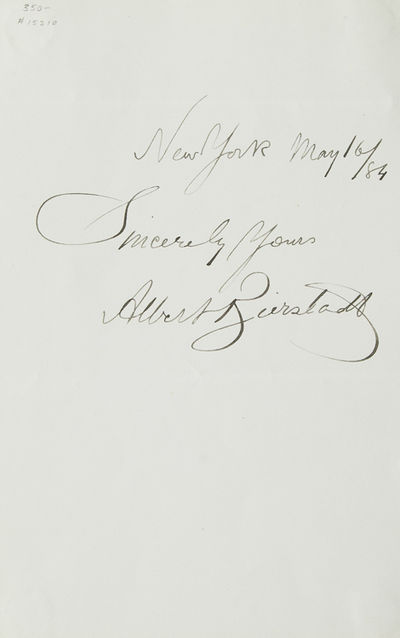 350-
#15210
New York May 16/84
Sincerely Yours
Albert Bierstadt